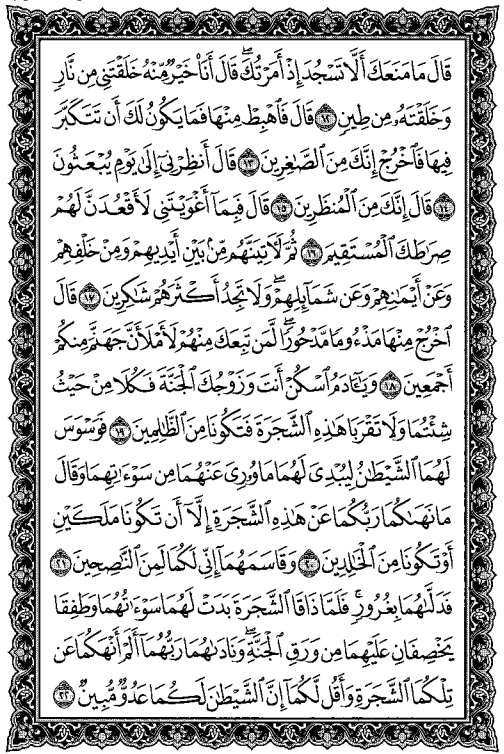 قَالَ مَا مَنَعَكَ أَلَّا تَسْجُدَ إِذْ أَمَرْتُكَ ۖ قَالَ أَنَا۠ خَيْرٌ مِّنْهُ خَلَقْتَنِي مِن نَّارٍ
وَخَلَقْتَهُۥ مِن طِينٍ ١٢ قَالَ فَٱهْبِطْ مِنْهَا فَمَا يَكُونُ لَكَ أَن تَتَكَبَّرَ
فِيهَا فَٱخْرُجْ إِنَّكَ مِنَ ٱلصَّٰغِرِينَ ١٣ قَالَ أَنظِرْنِيٓ إِلَىٰ يَوْمِ يُبْعَثُونَ
١٤ قَالَ إِنَّكَ مِنَ ٱلْمُنظَرِينَ ١٥ قَالَ فَبِمَآ أَغْوَيْتَنِي لَأَقْعُدَنَّ لَهُمْ
صِرَٰطَكَ ٱلْمُسْتَقِيمَ ١٦ ثُمَّ لَأٓتِيَنَّهُم مِّنۢ بَيْنِ أَيْدِيهِمْ وَمِنْ خَلْفِهِمْ
وَعَنْ أَيْمَٰنِهِمْ وَعَن شَمَآئِلِهِمْ ۖ وَلَا تَجِدُ أَكْثَرَهُمْ شَٰكِرِينَ ١٧ قَالَ
ٱخْرُجْ مِنْهَا مَذْءُومًا مَّدْحُورًا ۖ لَّمَن تَبِعَكَ مِنْهُمْ لَأَمْلَأَنَّ جَهَنَّمَ مِنكُمْ
أَجْمَعِينَ ١٨ وَيَٰٓـَٔادَمُ ٱسْكُنْ أَنتَ وَزَوْجُكَ ٱلْجَنَّةَ فَكُلَا مِنْ حَيْثُ
شِئْتُمَا وَلَا تَقْرَبَا هَٰذِهِ ٱلشَّجَرَةَ فَتَكُونَا مِنَ ٱلظَّٰلِمِينَ ١٩ فَوَسْوَسَ
لَهُمَا ٱلشَّيْطَٰنُ لِيُبْدِيَ لَهُمَا مَا وُۥرِيَ عَنْهُمَا مِن سَوْءَٰتِهِمَا وَقَالَ
مَا نَهَىٰكُمَا رَبُّكُمَا عَنْ هَٰذِهِ ٱلشَّجَرَةِ إِلَّآ أَن تَكُونَا مَلَكَيْنِ
أَوْ تَكُونَا مِنَ ٱلْخَٰلِدِينَ ٢٠ وَقَاسَمَهُمَآ إِنِّي لَكُمَا لَمِنَ ٱلنَّٰصِحِينَ ٢١
فَدَلَّىٰهُمَا بِغُرُورٍ ۚ فَلَمَّا ذَاقَا ٱلشَّجَرَةَ بَدَتْ لَهُمَا سَوْءَٰتُهُمَا وَطَفِقَا
يَخْصِفَانِ عَلَيْهِمَا مِن وَرَقِ ٱلْجَنَّةِ ۖ وَنَادَىٰهُمَا رَبُّهُمَآ أَلَمْ أَنْهَكُمَا عَن
تِلْكُمَا ٱلشَّجَرَةِ وَأَقُل لَّكُمَآ إِنَّ ٱلشَّيْطَٰنَ لَكُمَا عَدُوٌّ مُّبِينٌ ٢٢